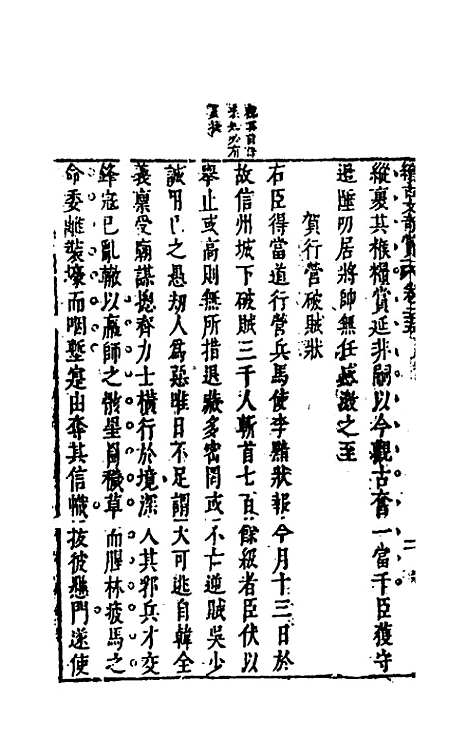 續古文奇賞卷
縱裏其糇糧賞延非嗣以今觀古奮一當千臣獲守
退陲叨居將帥無任感激之至
賀行營破賊狀
右臣得當道行營兵馬使李黯狀報今月十三日於
故信州城下破賊三千人斬首七百餘級者臣伏以
舉止或高則無所措退藏多密罔或不亡逆賊吳少
誠用己之愚劫人為惡唯日不足謂天可逃自韓全
義稟受廟謀摠齊力士橫行於境深入其郛兵才交
鋒寇已亂轍以羸師之骸壘實穢草而腥林疲馬之
命委雕裝壕而咽塹寔由奪其信幟拔彼懸門遂使